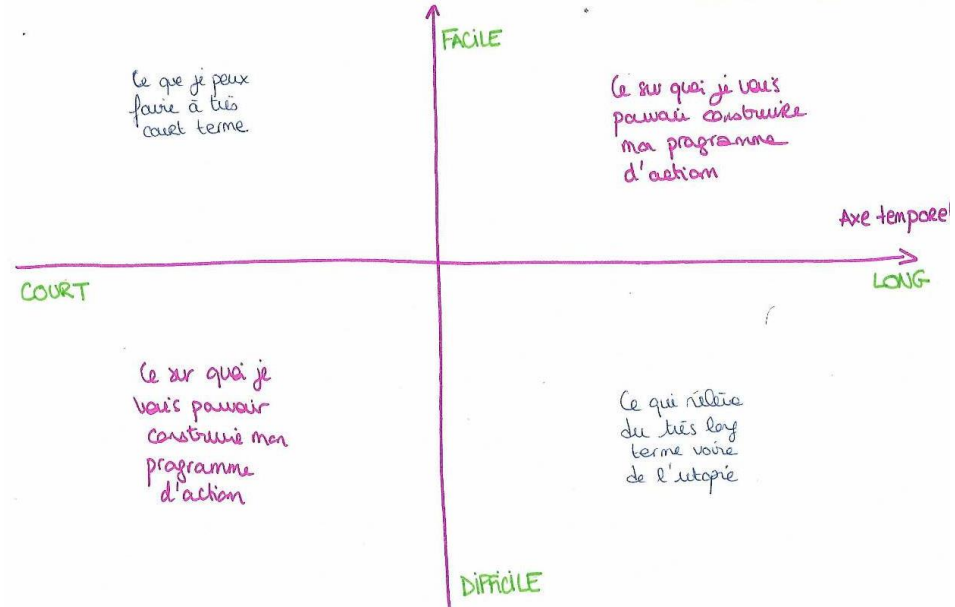 FACILE
Ce que je peux
faire à très
court terme
Ce sur quoi je vais
pouvoir construire
mon programme
d'action
Axe temporel
COURT
LONG
Ce sur quoi je
vais pouvoir
construire mon
programme
d'action
Ce qui relève
du très long
terme voire
de l'utopie
DIFFICILE